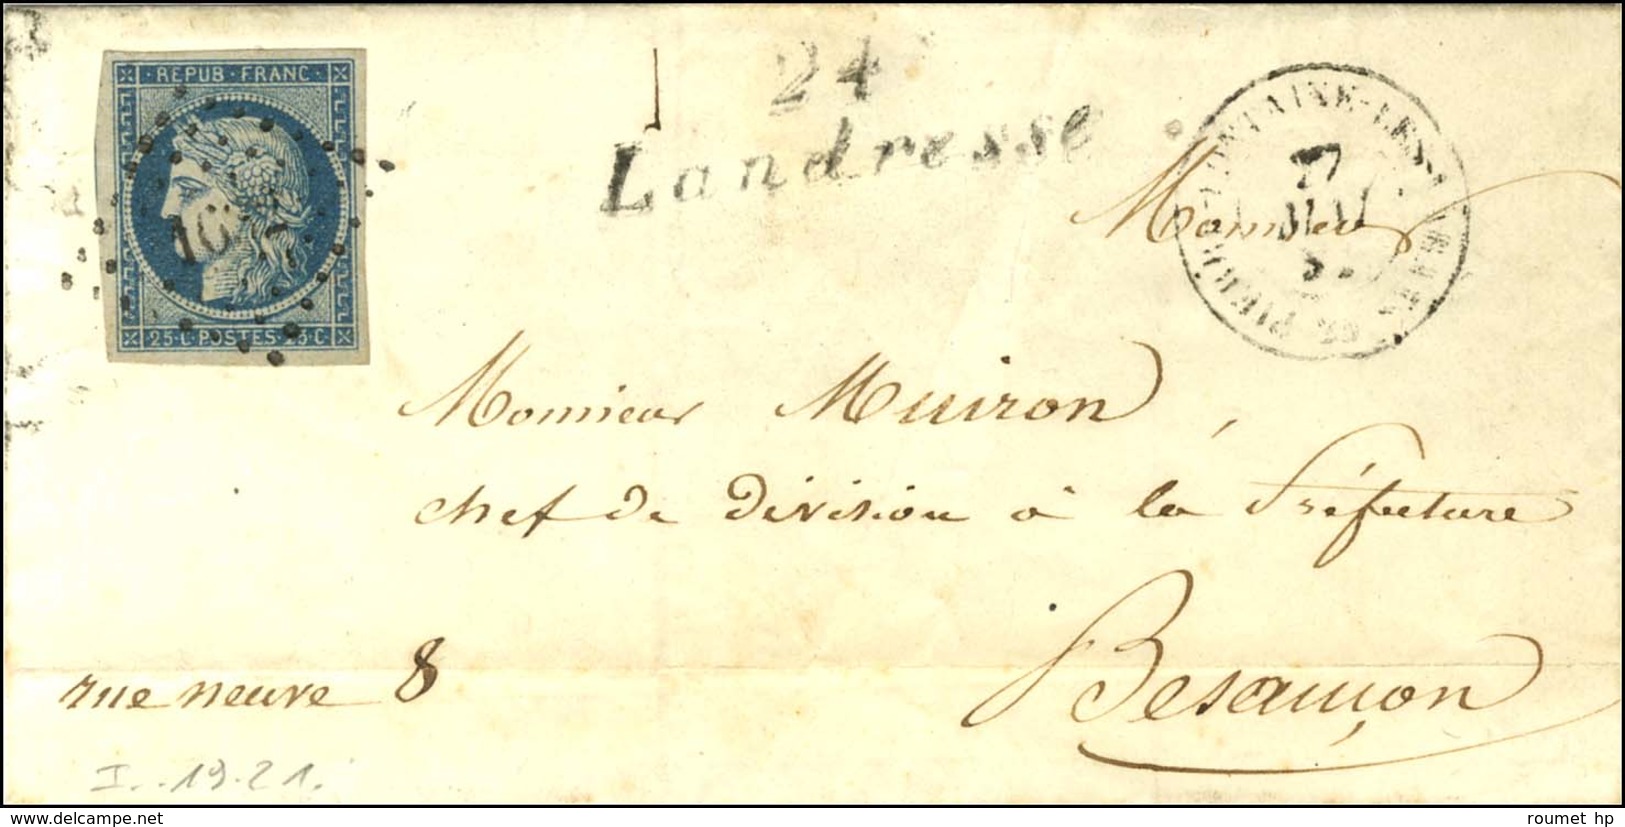 REPUB·FRANC·
25·C·POSTES·25·C
24
Landresse
PIERRE-FONTAINE-LES-
Monsieur
Monsieur Muiron,
chef de division à la Préfecture
Besançon
rue neuve 8
I..19.21.
roumet hp